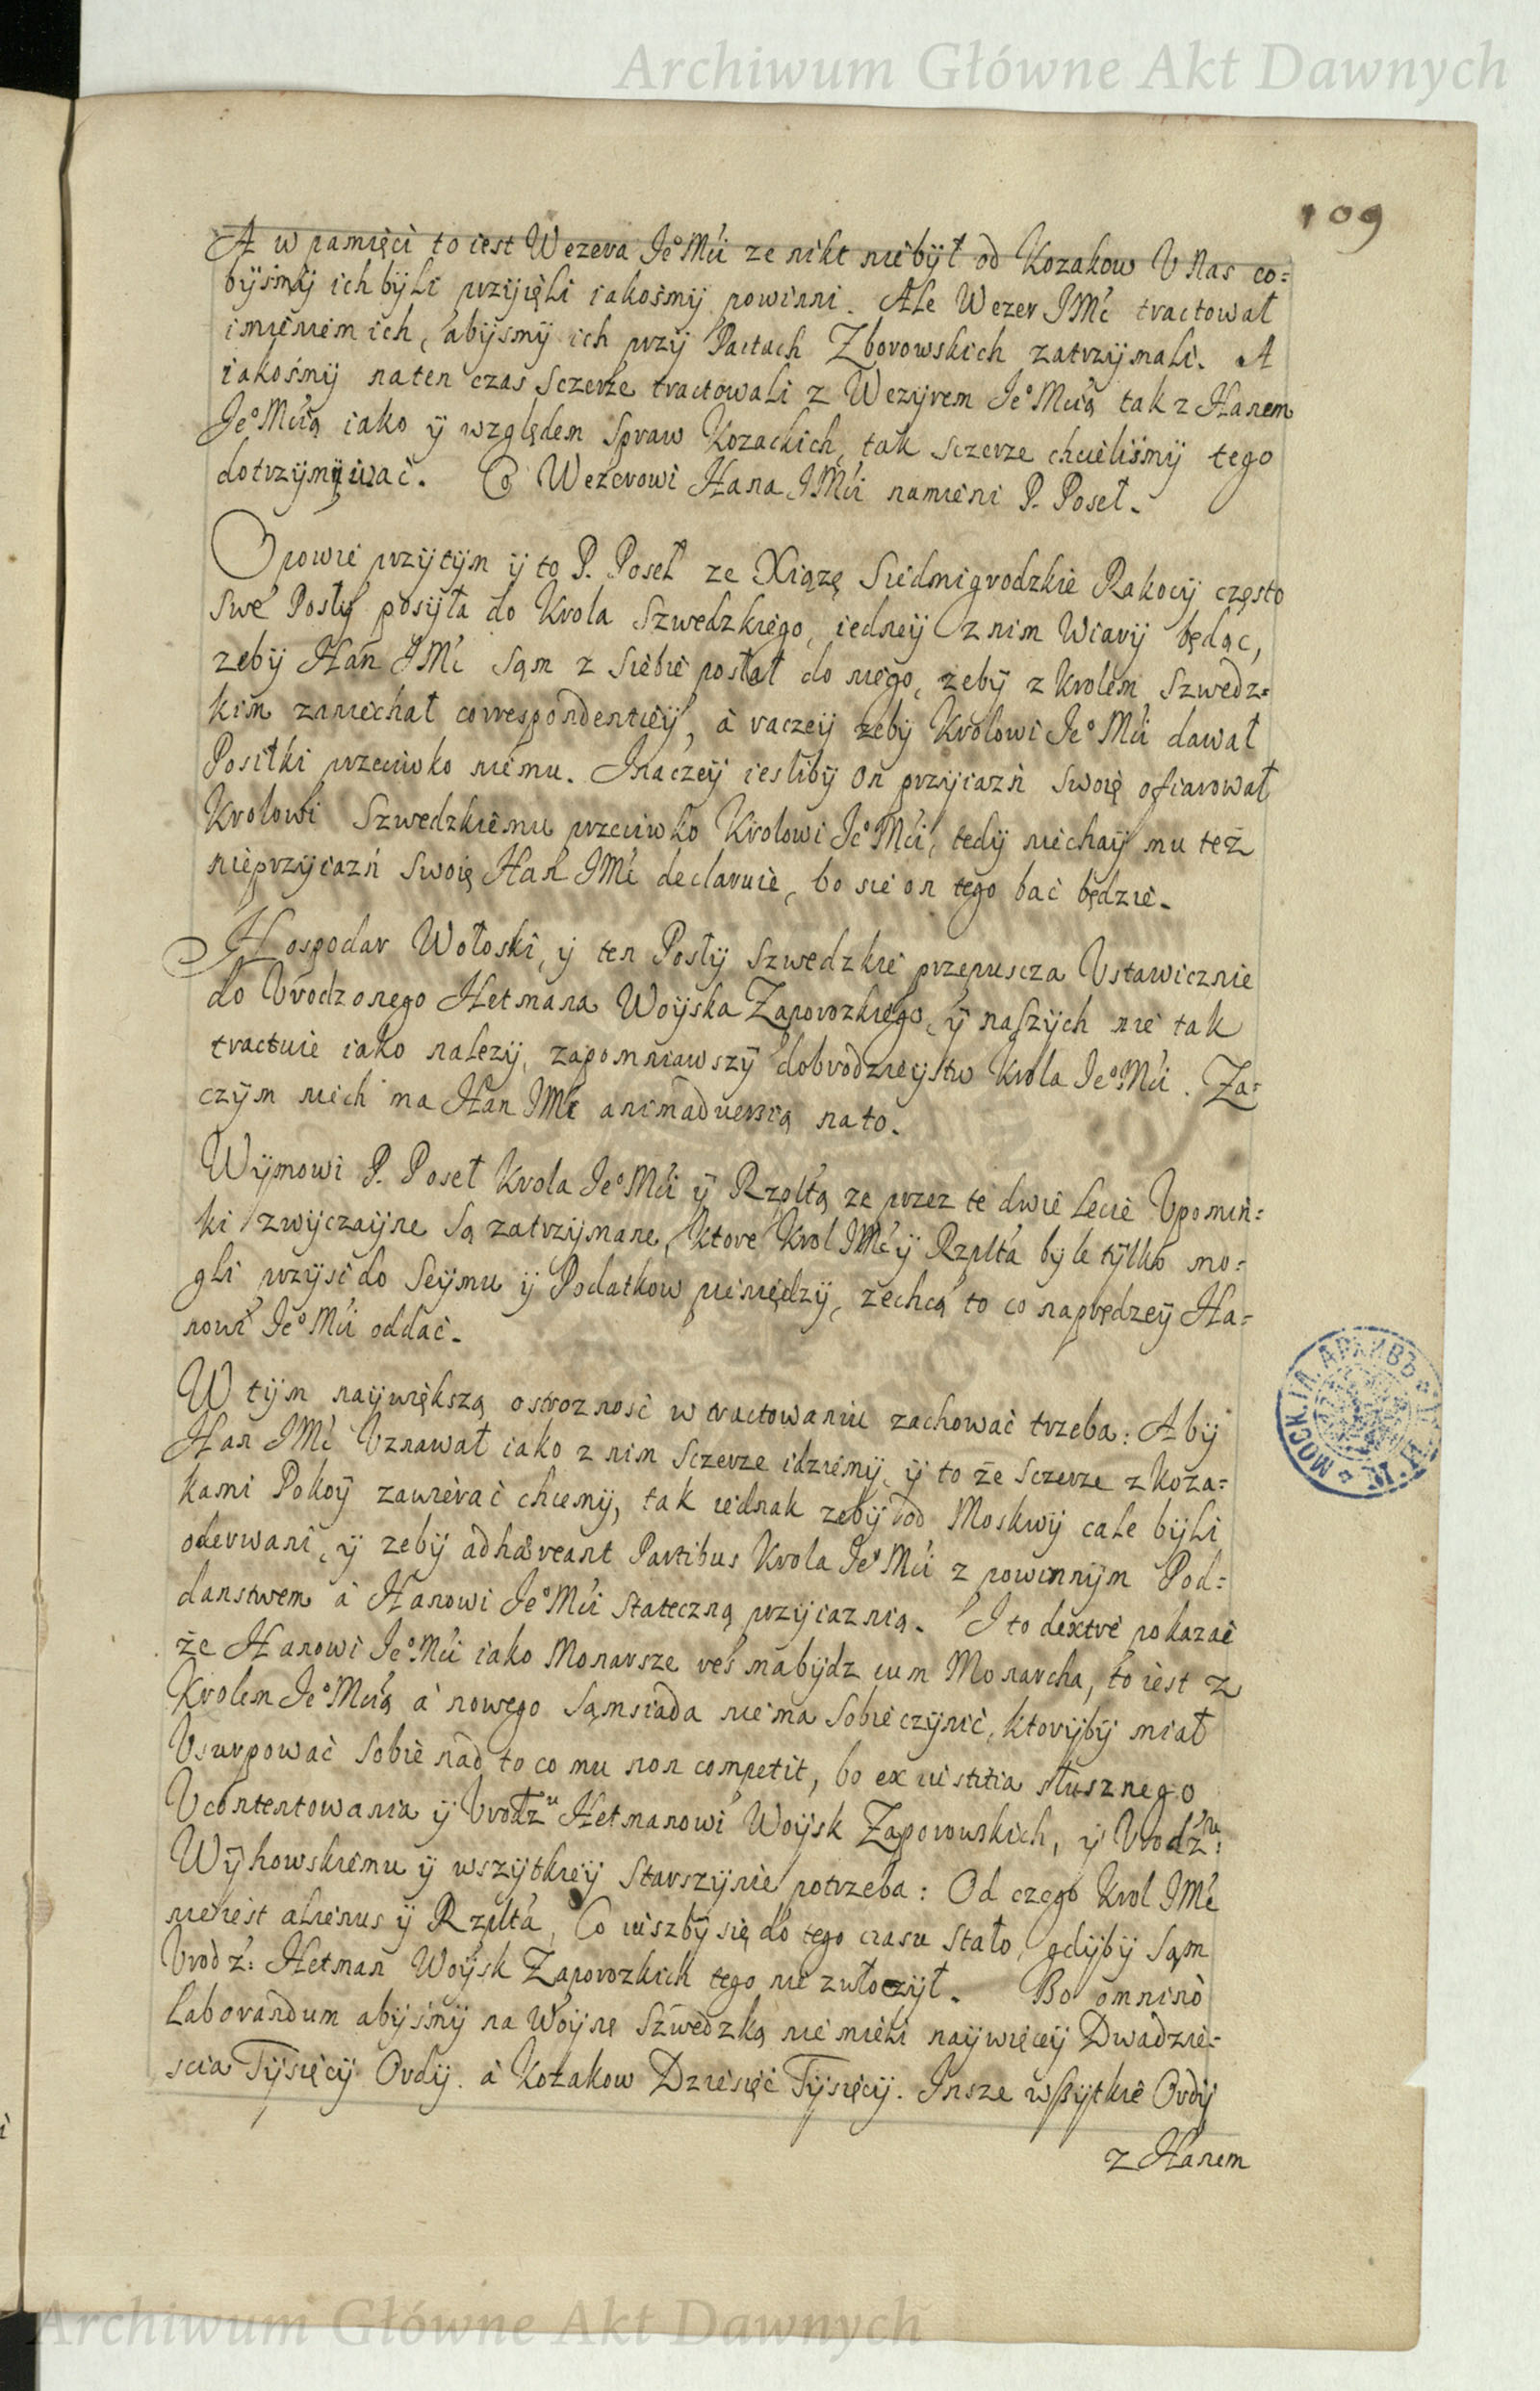 Archiwum Główne Akt Dawnych
109
A w pamięci to iest Wezera Je° Mći ze nikt niebÿł od Kozakow V Nas co=
bÿsmÿ ich bÿli przÿięli iakosmÿ powinni. Ale Wezer JMć tractował
imieniem ich, abÿsmÿ ich przÿ Pactach Zborowskich zatrzÿmali. A
iakosmÿ naten czas sczerze tractowali z Wezÿrem Je° Mcią tak z Hanem
Je° Mcią iako ÿ względem Spraw Kozackich, tak sczerze chcielismÿ tego
dotrzÿmÿwać. Co Wezerowi Hana JMći namieni P. Poseł.
Opowie przÿtÿm ÿ to P. Poseł ze Xiązę Siedmigrodzkie Rakocÿ często
swe Posłÿ posÿła do Krola Szwedzkiego, iedneÿ z nim Wiarÿ będąc,
zebÿ Han JMć sąm z siebie posłał do niego, zebÿ z Krolem Szwedz=
kim zaniechał correspondentieÿ, à raczeÿ zebÿ Krolowi Je° Mći dawał
Posiłki przeciwko niemu. Inaczeÿ iesliby on przÿiazń swoię ofiarował
Krolowi Szwedzkiemu przeciwko Krolowi Je° Mći, tedÿ niechaÿ mu też
nieprzÿiazń swoię Han JMć declaruie, bo sie on tego bać będzie.
Hospodar Wołoski, ÿ ten Posłÿ Szwedzkie przepuscza Vstawicznie
do Vrodzonego Hetmana Woÿska Zaporozkiego, ÿ naszÿch nie tak
tractuie iako nalezÿ, zapomniawszÿ dobrodzieÿstw Krola Je° Mći. Za=
czÿm niech ma Han JMć animaduersią nato.
Wÿmowi P. Poseł Krola Je° Mći ÿ Rzpltą ze przez te dwie lecie Vpomin=
ki zwÿczaÿne są zatrzÿmane, ktore Krol JMć ÿ Rzplta bÿle tÿlko mo=
gli przÿsć do Seÿmu ÿ Podatkow pieniędzÿ, zechcą to co naprędzeÿ Ha=
nowi Je° Mći oddać.
W tÿm naÿwiększą ostroznosć w tractowaniu zachować trzeba: Abÿ
Han JMć Vznawał iako z nim sczerze idziemÿ, ÿ to że sczerze z Koza=
kami Pokoÿ zawierać chcemÿ, tak iednak zebÿ od Moskwÿ cale bÿli
oderwani, ÿ zebÿ adhæreant Partibus Krola Je° Mći z powinnÿm Pod=
danstwem à Hanowi Je° Mći stateczną przÿiaznią. I to dextre pokazać
że Hanowi Je° Mći iako Monarsze res ma bÿdz cum Monarcha, to iest z
Krolem Je° Mcią à nowego Sąmsiada nie ma sobie czÿnić, ktorÿbÿ miał
Vsurpować sobie nad to co mu non competit, bo ex iustitia słusznego
Vcontentowania ÿ Vrodz^u Hetmanowi Woÿsk Zaporowskich, ÿ Vrodz^u:
Wÿhowskiemu ÿ wszÿtkieÿ Starszÿnie potrzeba: Od czego Krol JMć
nieiest alienus ÿ Rzplta, Co iuszbÿ się do tego czasu stało, gdÿbÿ sąm
Vrodz: Hetman Woÿsk Zaporozkich tego nie zwłoczÿł. Bo omninò
laborandum abÿsmÿ na Woÿnę Szwedzką nie mieli naÿwięceÿ Dwadzie=
scia Tÿsięcÿ Ordÿ. à Kozakow Dziesięć Tÿsięcÿ. Insze wszÿtkie Ordÿ
z Hanem
Archiwum Główne Akt Dawnych